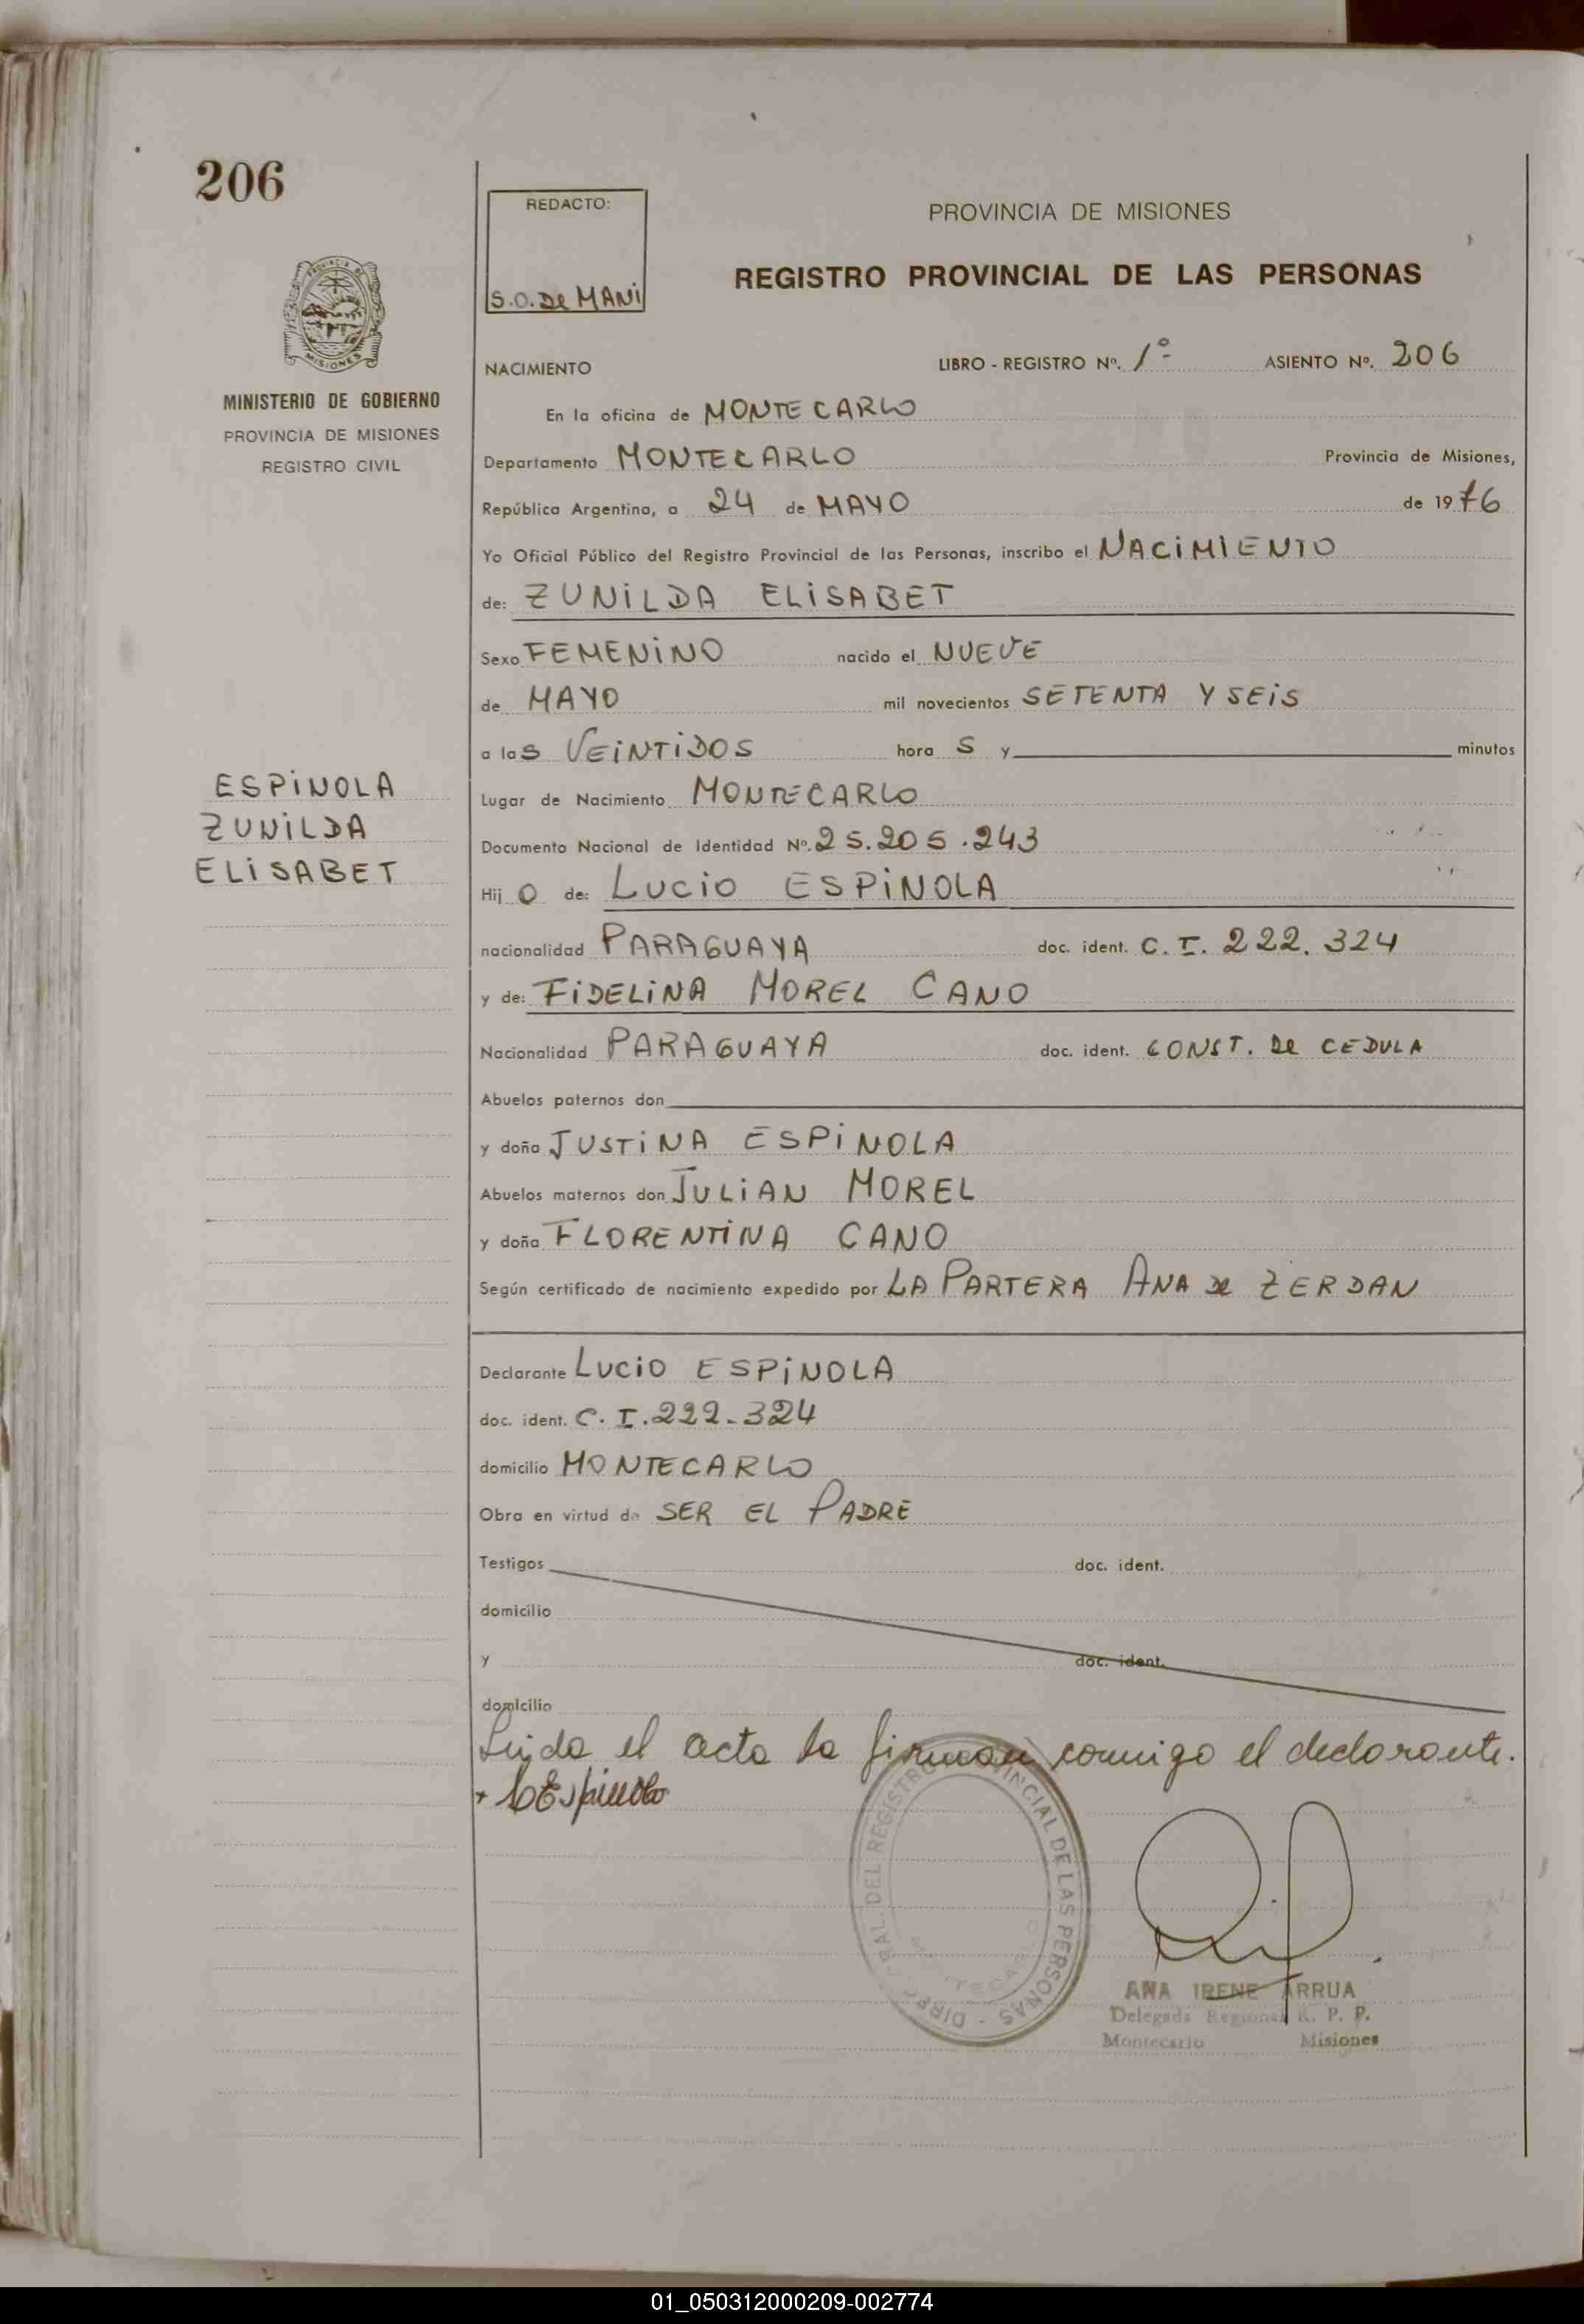 206
REDACTO:
S.O. De MANI
PROVINCIA DE MISIONES
REGISTRO PROVINCIAL DE LAS PERSONAS
PROVINCIA DE
MISIONES
MINISTERIO DE GOBIERNO
PROVINCIA DE MISIONES
REGISTRO CIVIL
NACIMIENTO LIBRO - REGISTRO Nº. 1º ASIENTO Nº. 206
En la oficina de MONTECARLO
Departamento MONTECARLO Provincia de Misiones,
República Argentina, a 24 de MAYO de 1976
Yo Oficial Público del Registro Provincial de las Personas, inscribo el NACIMIENTO
de: ZUNILDA ELISABET
Sexo FEMENINO nacido el NUEVE
de MAYO mil novecientos SETENTA Y SEIS
a las VEINTIDOS hora S y minutos
ESPINOLA
ZUNILDA
ELISABET
Lugar de Nacimiento MONTECARLO
Documento Nacional de Identidad Nº. 25.205.243
Hij O de: LUCIO ESPINOLA
nacionalidad PARAGUAYA doc. ident. C.I. 222.324
y de: FIDELINA MOREL CANO
Nacionalidad PARAGUAYA doc. ident. CONST. De CEDULA
Abuelos paternos don
y doña JUSTINA ESPINOLA
Abuelos maternos don JULIAN MOREL
y doña FLORENTINA CANO
Según certificado de nacimiento expedido por LA PARTERA ANA De ZERDAN
Declarante LUCIO ESPINOLA
doc. ident. C.I. 222-324
domicilio MONTECARLO
Obra en virtud de SER EL PADRE
Testigos doc. ident.
domicilio
y doc. ident.
domicilio
Leida el acta la firman conmigo el declarante.
L Espinola
DEL REGISTRO PROVINCIAL DE LAS PERSONAS
ANA IRENE ARRUA
Delegada Regional R. P. P.
Montecarlo Misiones
01_050312000209-002774